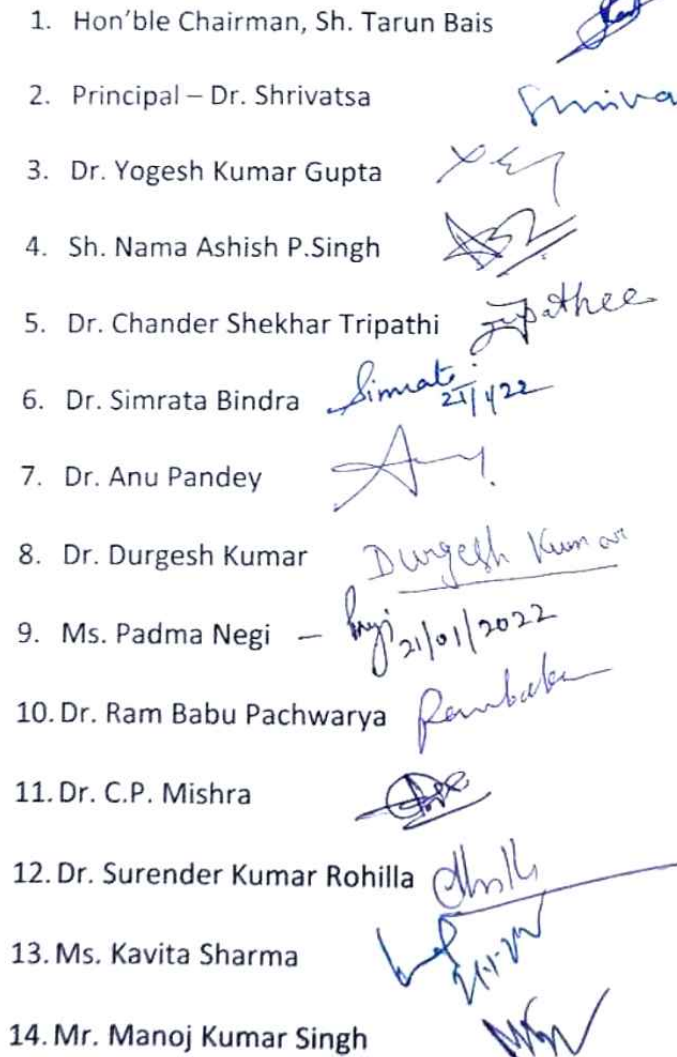 1. Hon'ble Chairman, Sh. Tarun Bais
2. Principal – Dr. Shrivatsa
3. Dr. Yogesh Kumar Gupta
4. Sh. Nama Ashish P.Singh
5. Dr. Chander Shekhar Tripathi
6. Dr. Simrata Bindra Simrata 21/1/22
7. Dr. Anu Pandey
8. Dr. Durgesh Kumar Durgesh Kumar
9. Ms. Padma Negi – 21/01/2022
10. Dr. Ram Babu Pachwarya Rambabu
11. Dr. C.P. Mishra
12. Dr. Surender Kumar Rohilla
13. Ms. Kavita Sharma
14. Mr. Manoj Kumar Singh